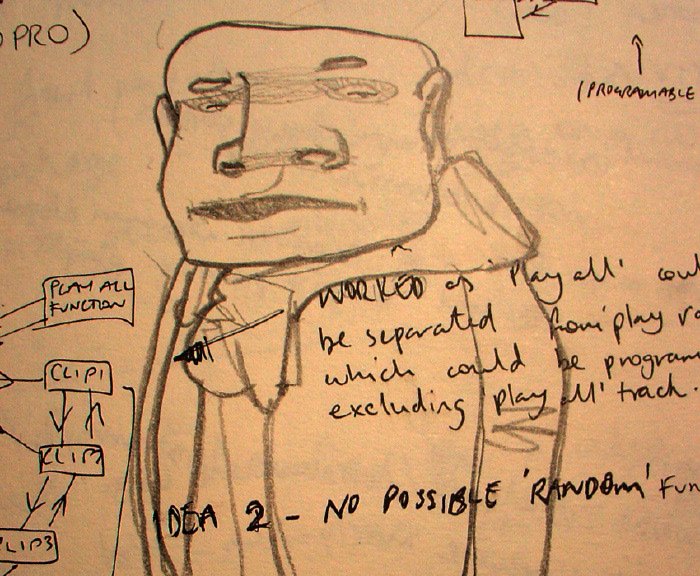 PRO)
(PROGRAMABLE
PLAY ALL
FUNCTION
CLIP1
CLIP3
WORKED as 'play all' coul
be separated from 'play ra
which could be program
excluding 'play all' track.
IDEA 2 - NO POSSIBLE 'RANDOM' FUN